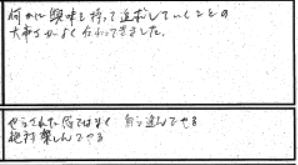 何かに興味を持って追求していくことの
大事さがよく伝わってきました。
やらされた 感ではなく 自ら進んでやる
絶対楽しんでやる